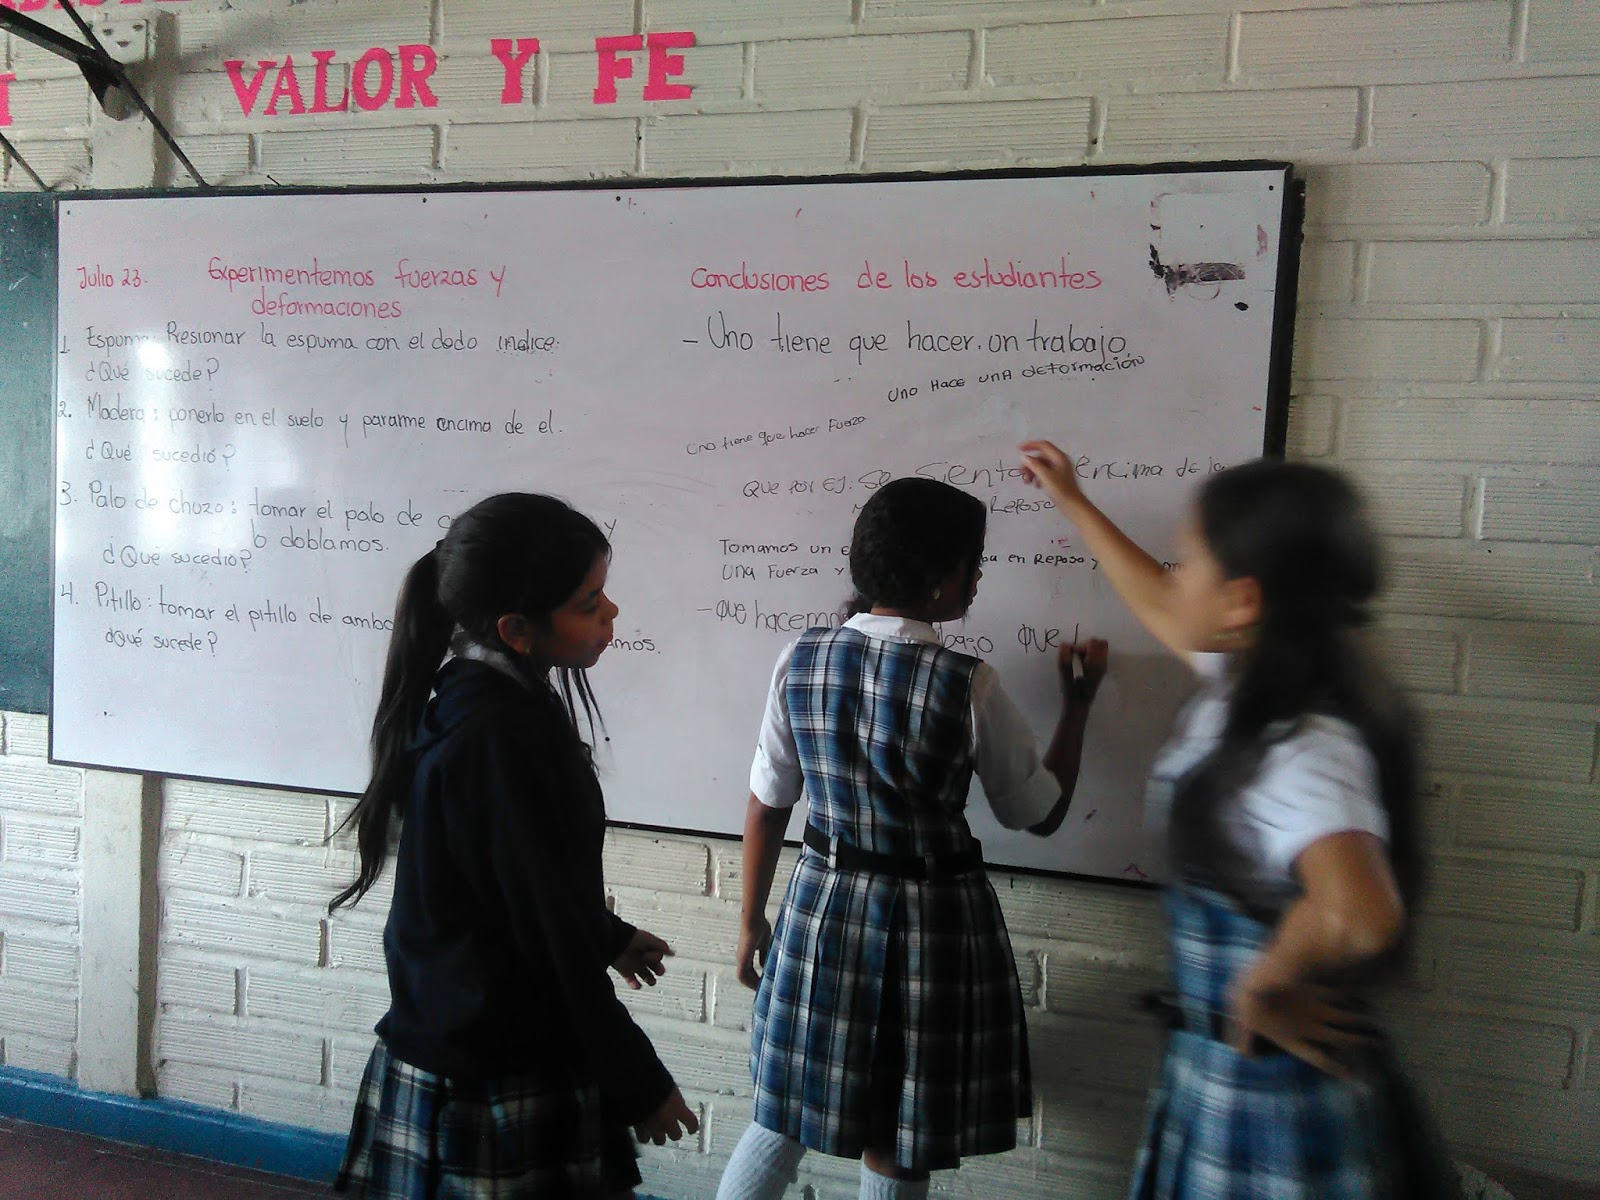 VALOR Y FE
Julio 23. Experimentemos fuerzas y
deformaciones
1. Espuma: Presionar la espuma con el dedo indice.
¿Qué sucede?
2. Madera: ponerlo en el suelo y pararme encima de el.
¿Qué sucedió?
3. Palo de chuzo: tomar el palo de y
lo doblamos.
¿Qué sucedio?
4. Pitillo: tomar el pitillo de
¿Qué sucede?
Conclusiones de los estudiantes
- Uno tiene que hacer. un trabajo
Uno Hace unA deformación
Uno tiene que hacer Fuerza
Que por ej. se encima de la
Reposo
Tomamos un en Reposo y
Una Fuerza y
- que
que